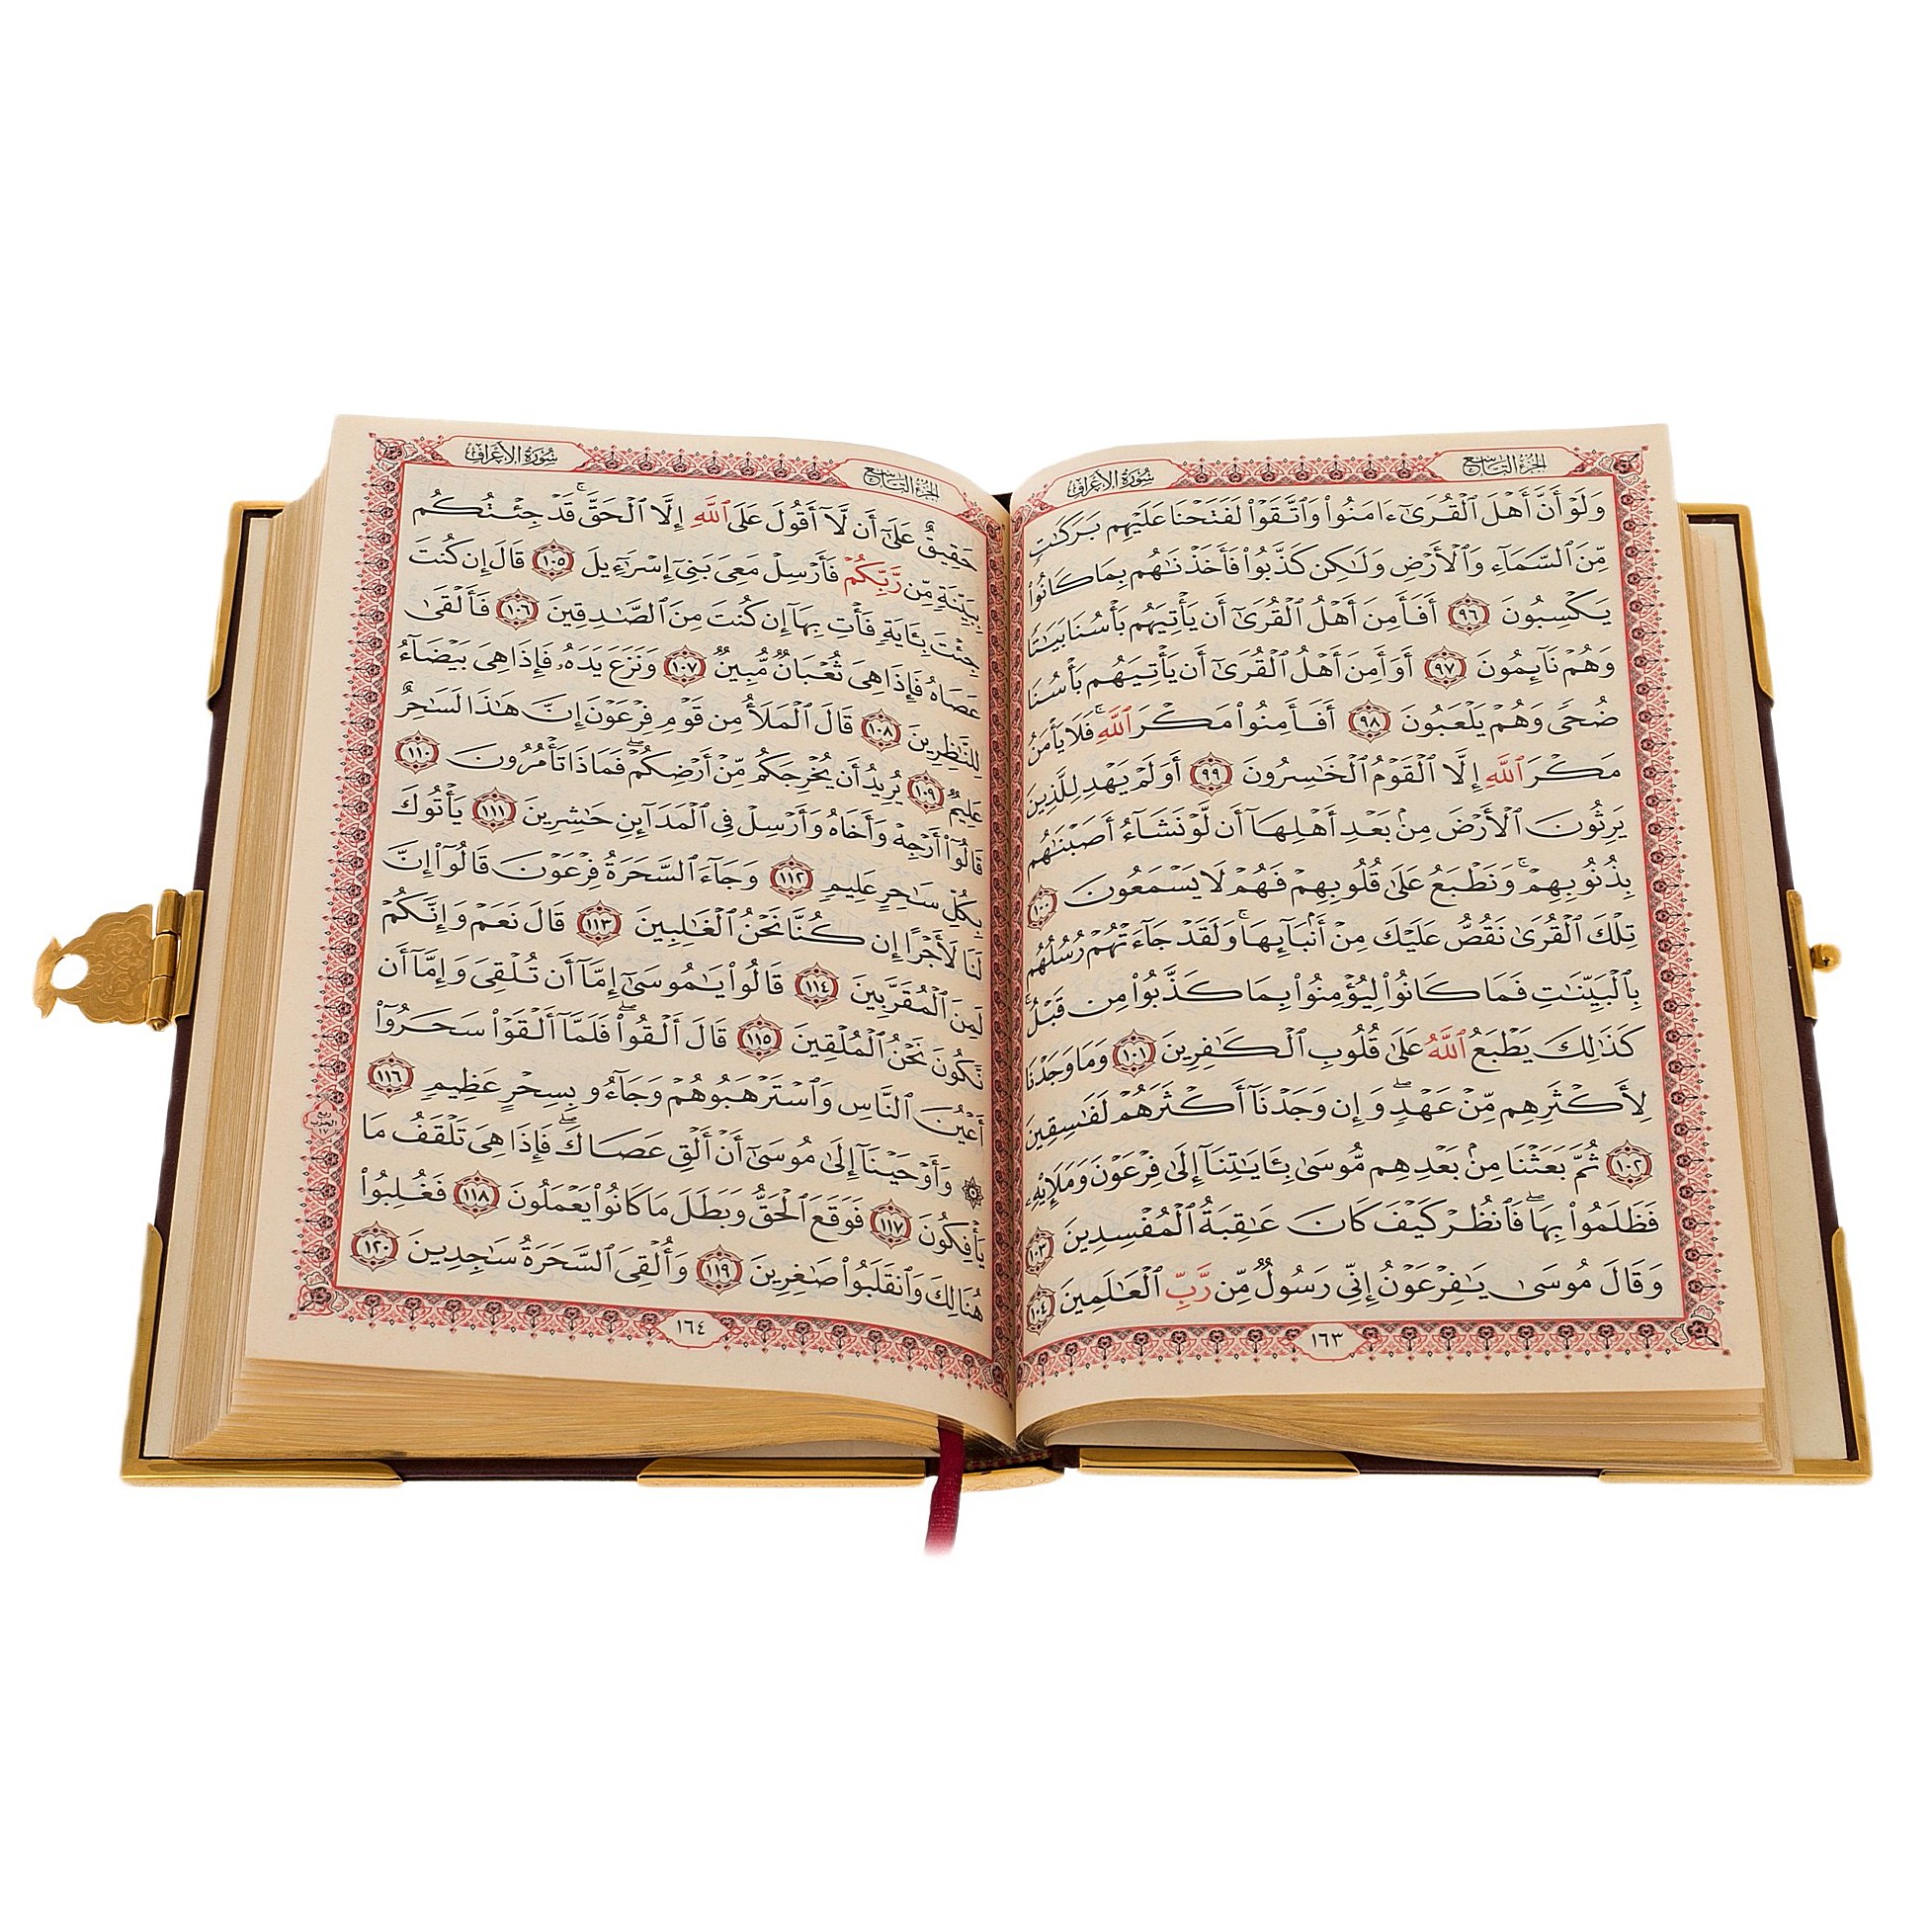 الجزء التاسع
سورة الأعراف
وَلَوْ أَنَّ أَهْلَ ٱلْقُرَىٰٓ ءَامَنُوا۟ وَٱتَّقَوْا۟ لَفَتَحْنَا عَلَيْهِم بَرَكَٰتٍ
مِّنَ ٱلسَّمَآءِ وَٱلْأَرْضِ وَلَٰكِن كَذَّبُوا۟ فَأَخَذْنَٰهُم بِمَا كَانُوا۟
يَكْسِبُونَ ٩٦ أَفَأَمِنَ أَهْلُ ٱلْقُرَىٰٓ أَن يَأْتِيَهُم بَأْسُنَا بَيَٰتًا
وَهُمْ نَآئِمُونَ ٩٧ أَوَأَمِنَ أَهْلُ ٱلْقُرَىٰٓ أَن يَأْتِيَهُم بَأْسُنَا
ضُحًى وَهُمْ يَلْعَبُونَ ٩٨ أَفَأَمِنُوا۟ مَكْرَ ٱللَّهِ ۚ فَلَا يَأْمَنُ
مَكْرَ ٱللَّهِ إِلَّا ٱلْقَوْمُ ٱلْخَٰسِرُونَ ٩٩ أَوَلَمْ يَهْدِ لِلَّذِينَ
يَرِثُونَ ٱلْأَرْضَ مِنۢ بَعْدِ أَهْلِهَآ أَن لَّوْ نَشَآءُ أَصَبْنَٰهُم
بِذُنُوبِهِمْ ۚ وَنَطْبَعُ عَلَىٰ قُلُوبِهِمْ فَهُمْ لَا يَسْمَعُونَ ١٠٠
تِلْكَ ٱلْقُرَىٰ نَقُصُّ عَلَيْكَ مِنْ أَنۢبَآئِهَا ۚ وَلَقَدْ جَآءَتْهُمْ رُسُلُهُم
بِٱلْبَيِّنَٰتِ فَمَا كَانُوا۟ لِيُؤْمِنُوا۟ بِمَا كَذَّبُوا۟ مِن قَبْلُ ۚ
كَذَٰلِكَ يَطْبَعُ ٱللَّهُ عَلَىٰ قُلُوبِ ٱلْكَٰفِرِينَ ١٠١ وَمَا وَجَدْنَا
لِأَكْثَرِهِم مِّنْ عَهْدٍ ۖ وَإِن وَجَدْنَآ أَكْثَرَهُمْ لَفَٰسِقِينَ
١٠٢ ثُمَّ بَعَثْنَا مِنۢ بَعْدِهِم مُّوسَىٰ بِـَٔايَٰتِنَآ إِلَىٰ فِرْعَوْنَ وَمَلَإِي۟هِۦ
فَظَلَمُوا۟ بِهَا ۖ فَٱنظُرْ كَيْفَ كَانَ عَٰقِبَةُ ٱلْمُفْسِدِينَ ١٠٣
وَقَالَ مُوسَىٰ يَٰفِرْعَوْنُ إِنِّى رَسُولٌ مِّن رَّبِّ ٱلْعَٰلَمِينَ ١٠٤
١٦٣
الجزء التاسع
سورة الأعراف
حَقِيقٌ عَلَىٰٓ أَن لَّآ أَقُولَ عَلَى ٱللَّهِ إِلَّا ٱلْحَقَّ ۚ قَدْ جِئْتُكُم
بِبَيِّنَةٍ مِّن رَّبِّكُمْ فَأَرْسِلْ مَعِىَ بَنِىٓ إِسْرَٰٓءِيلَ ١٠٥ قَالَ إِن كُنتَ
جِئْتَ بِـَٔايَةٍ فَأْتِ بِهَآ إِن كُنتَ مِنَ ٱلصَّٰدِقِينَ ١٠٦ فَأَلْقَىٰ
عَصَاهُ فَإِذَا هِىَ ثُعْبَانٌ مُّبِينٌ ١٠٧ وَنَزَعَ يَدَهُۥ فَإِذَا هِىَ بَيْضَآءُ
لِلنَّٰظِرِينَ ١٠٨ قَالَ ٱلْمَلَأُ مِن قَوْمِ فِرْعَوْنَ إِنَّ هَٰذَا لَسَٰحِرٌ
عَلِيمٌ ١٠٩ يُرِيدُ أَن يُخْرِجَكُم مِّنْ أَرْضِكُمْ ۖ فَمَاذَا تَأْمُرُونَ ١١٠
قَالُوٓا۟ أَرْجِهْ وَأَخَاهُ وَأَرْسِلْ فِى ٱلْمَدَآئِنِ حَٰشِرِينَ ١١١ يَأْتُوكَ
بِكُلِّ سَٰحِرٍ عَلِيمٍ ١١٢ وَجَآءَ ٱلسَّحَرَةُ فِرْعَوْنَ قَالُوٓا۟ إِنَّ
لَنَا لَأَجْرًا إِن كُنَّا نَحْنُ ٱلْغَٰلِبِينَ ١١٣ قَالَ نَعَمْ وَإِنَّكُمْ
لَمِنَ ٱلْمُقَرَّبِينَ ١١٤ قَالُوا۟ يَٰمُوسَىٰٓ إِمَّآ أَن تُلْقِىَ وَإِمَّآ أَن
نَّكُونَ نَحْنُ ٱلْمُلْقِينَ ١١٥ قَالَ أَلْقُوا۟ ۖ فَلَمَّآ أَلْقَوْا۟ سَحَرُوٓا۟
أَعْيُنَ ٱلنَّاسِ وَٱسْتَرْهَبُوهُمْ وَجَآءُو بِسِحْرٍ عَظِيمٍ ١١٦
۞ وَأَوْحَيْنَآ إِلَىٰ مُوسَىٰٓ أَنْ أَلْقِ عَصَاكَ ۖ فَإِذَا هِىَ تَلْقَفُ مَا
يَأْفِكُونَ ١١٧ فَوَقَعَ ٱلْحَقُّ وَبَطَلَ مَا كَانُوا۟ يَعْمَلُونَ ١١٨ فَغُلِبُوا۟
هُنَالِكَ وَٱنقَلَبُوا۟ صَٰغِرِينَ ١١٩ وَأُلْقِىَ ٱلسَّحَرَةُ سَٰجِدِينَ ١٢٠
ربع
الحزب
١٧
١٦٤